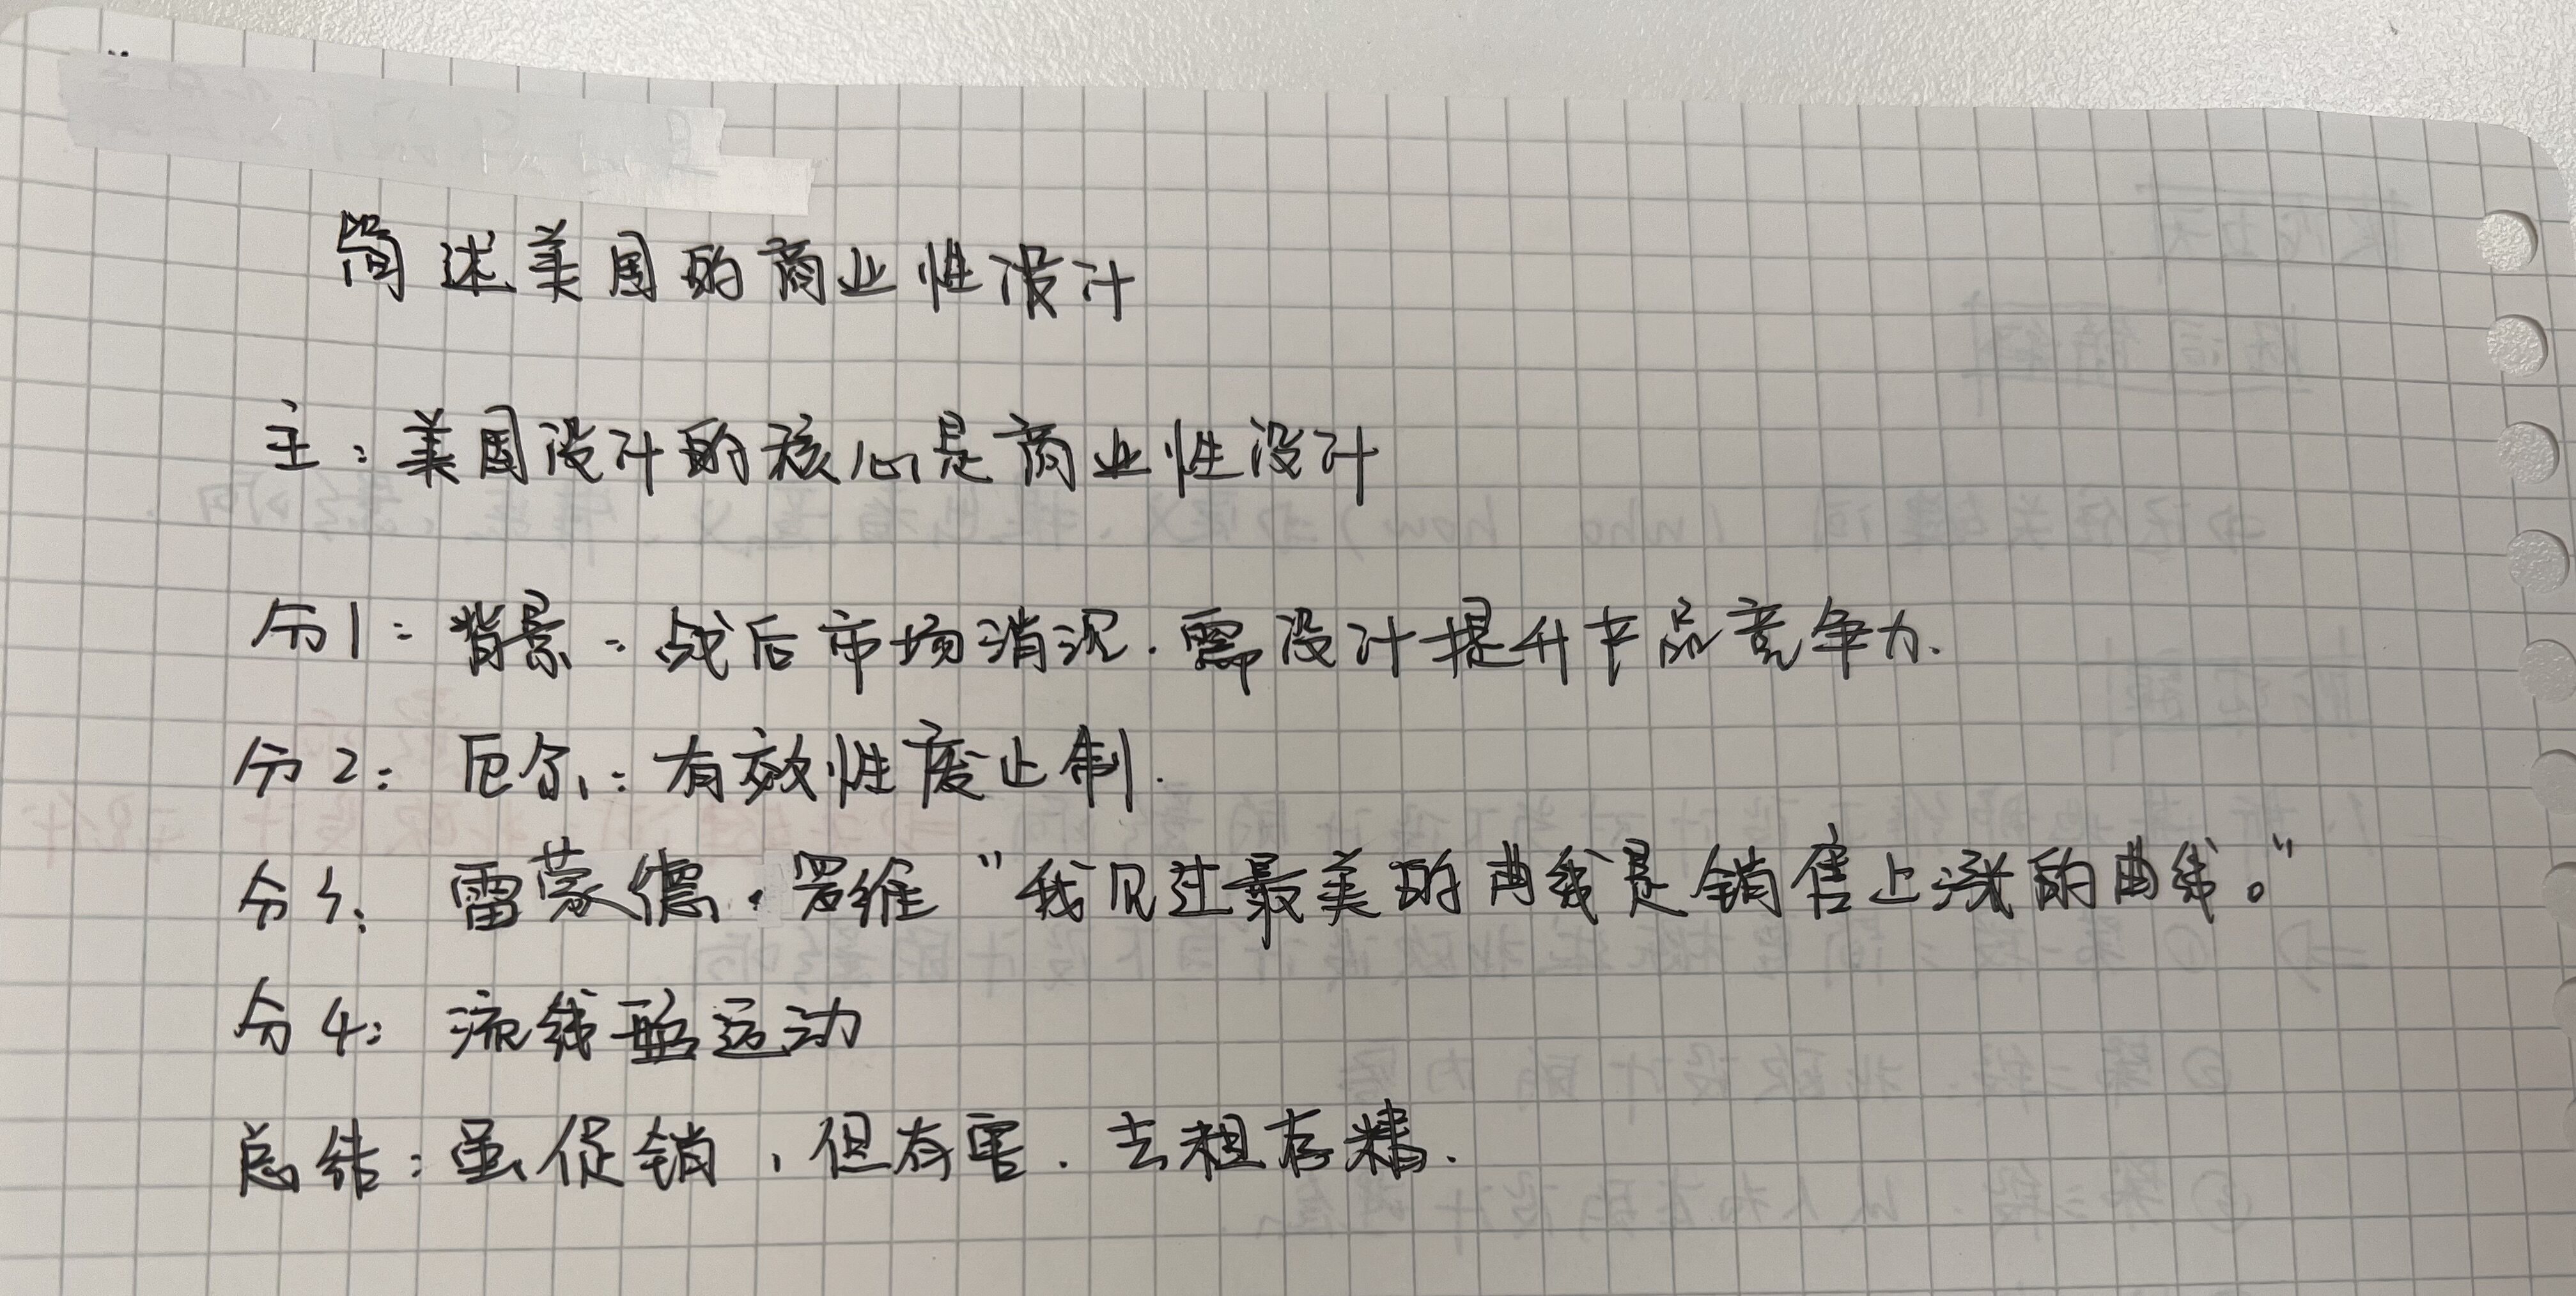 简述美国的商业性设计
主：美国设计的核心是商业性设计
分1：背景：战后市场消沉.需设计提升产品竞争力.
分2：厄尔：有效性废止制.
分3：雷蒙德·罗维“我见过最美的曲线是销售上涨的曲线。”
分4：流线型运动
总结：虽促销，但有害.去粗存精.